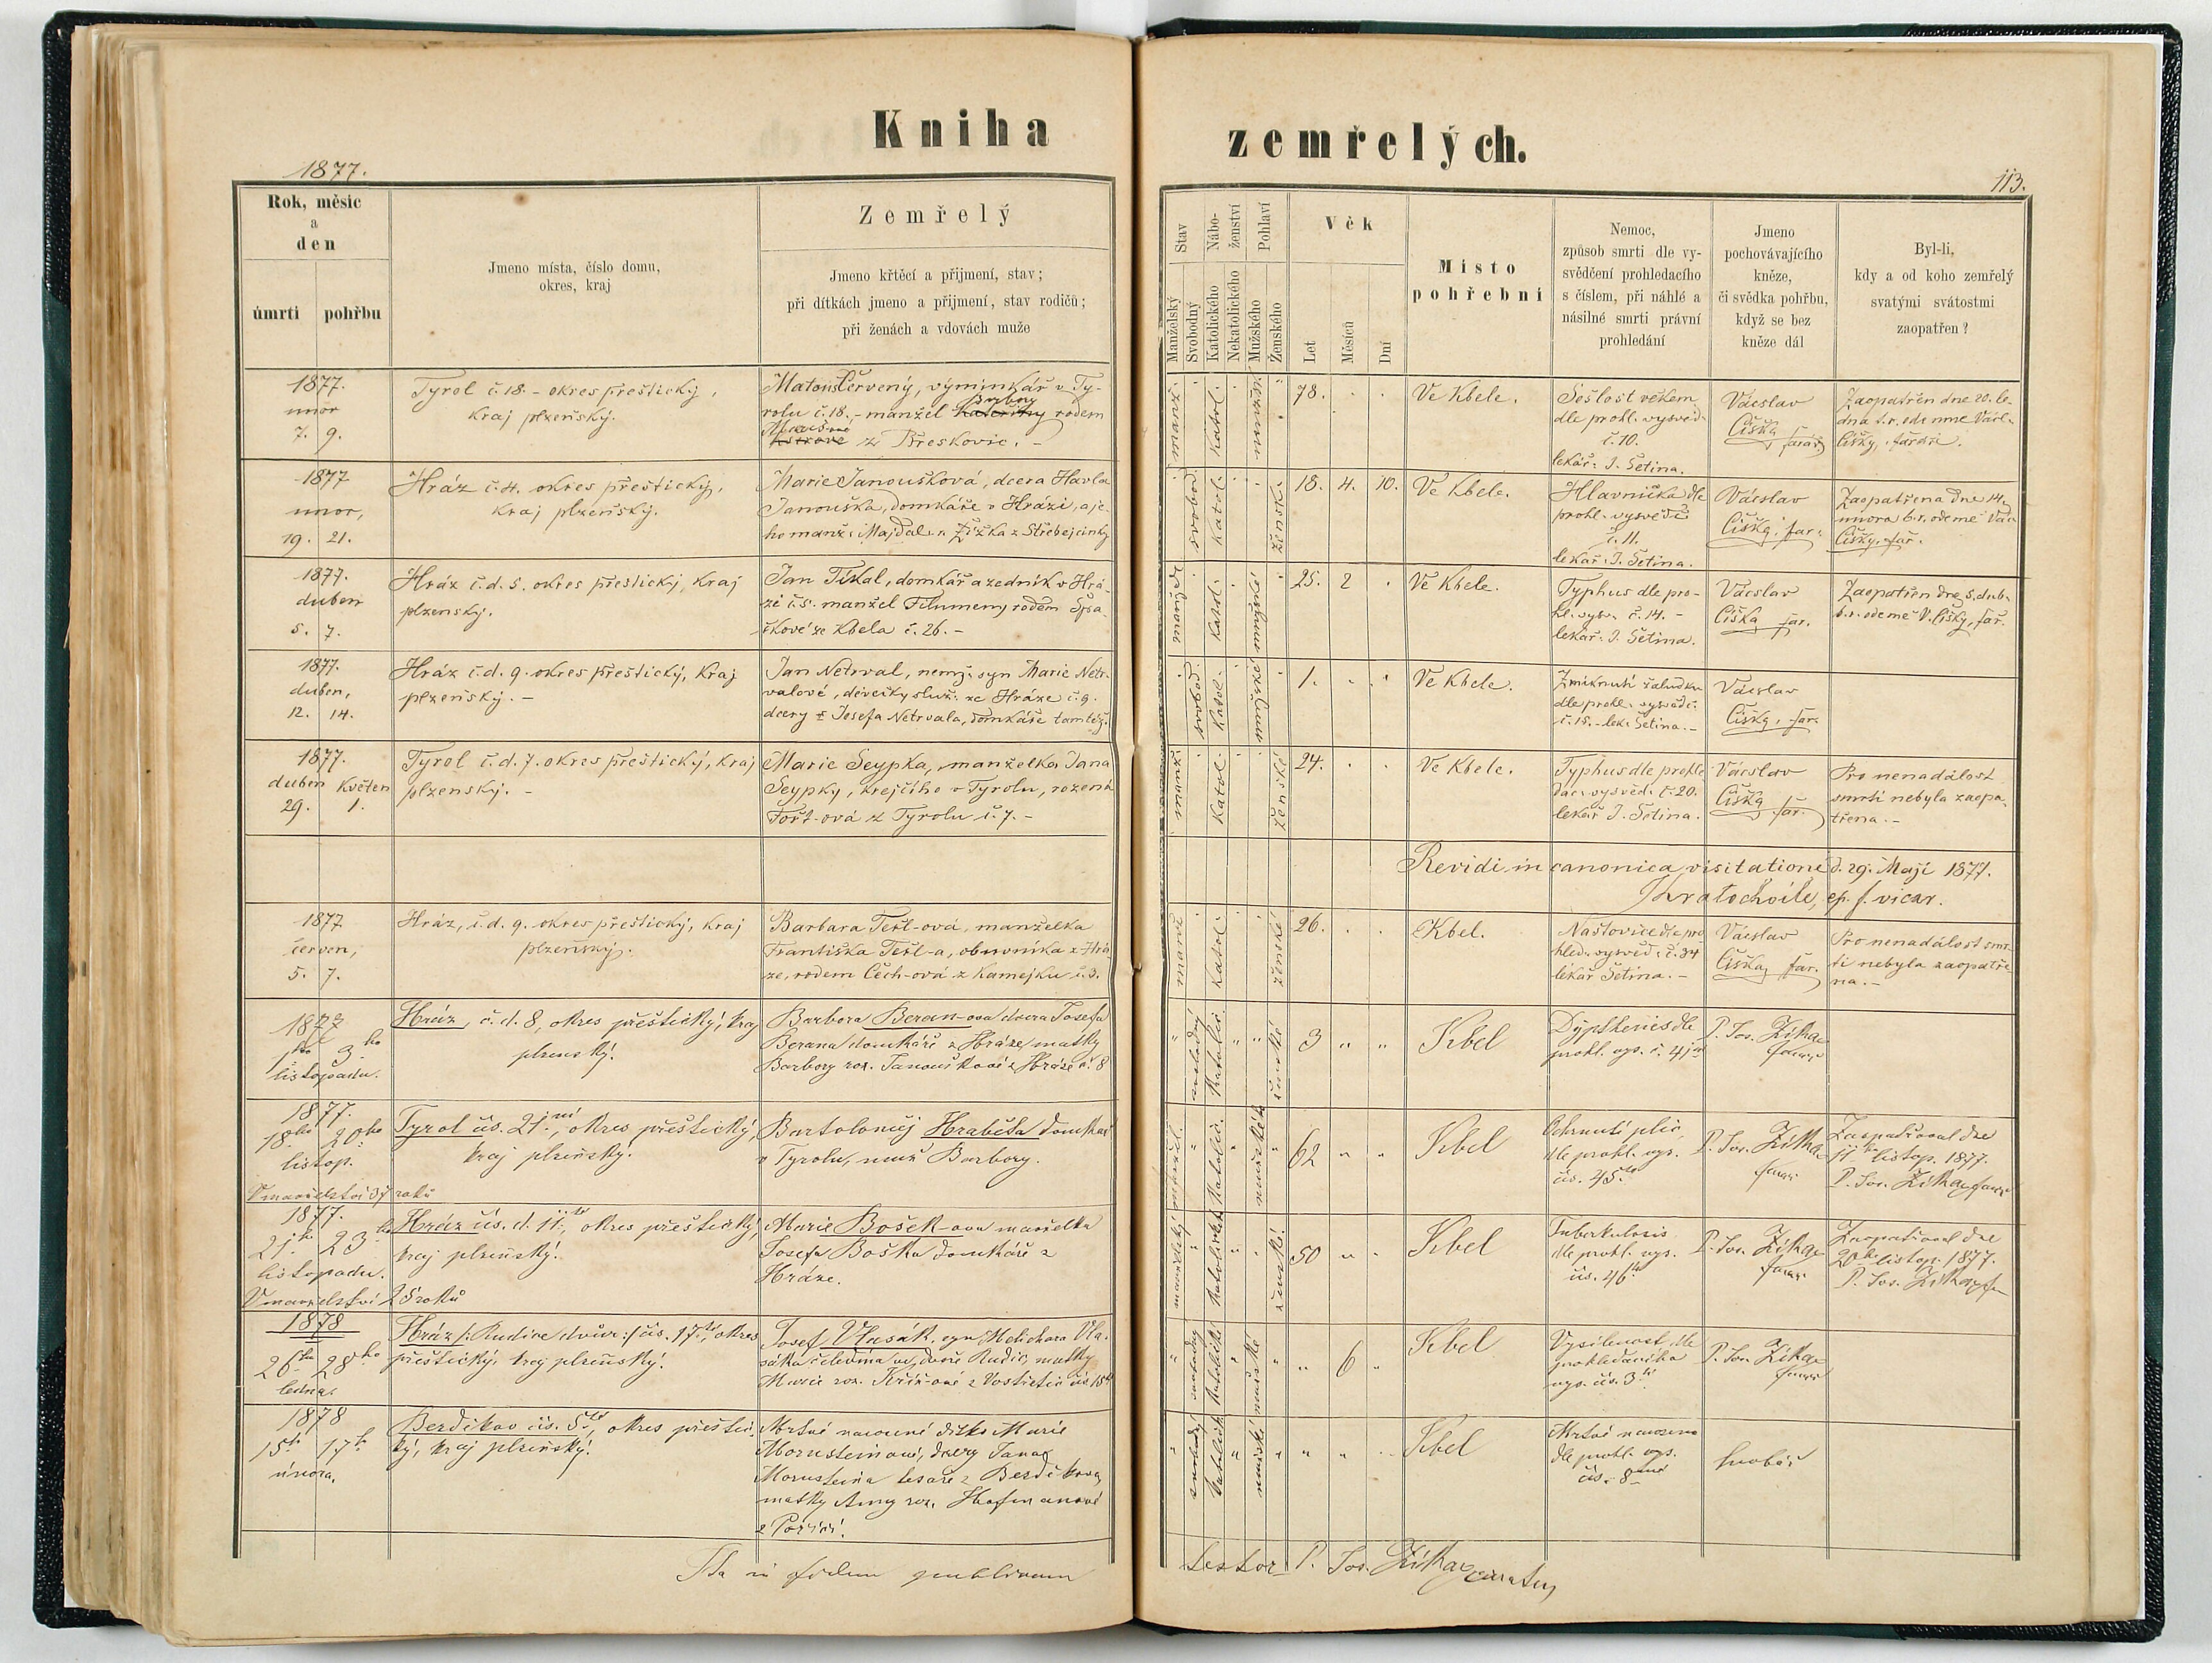 Kniha
zemřelých.
1877.
113.
Rok, měsíc
a
den
úmrtí
pohřbu
Jmeno místa, číslo domu,
okres, kraj
Zemřelý
Jmeno křtěcí a přijmení, stav;
při dítkách jmeno a přijmení, stav rodičů;
při ženách a vdovách muže
Stav
Manželský
Svobodný
Nábo-
ženství
Katolického
Nekatolického
Pohlaví
Mužského
Ženského
Věk
Let
Měsíců
Dní
Místo
pohřební
Nemoc,
způsob smrti dle vy-
svědčení prohledacího
s číslem, při náhlé a
násilné smrti právní
prohledání
Jmeno
pochovávajícího
kněze,
či svědka pohřbu,
když se bez
kněze dál
Byl-li,
kdy a od koho zemřelý
svatými svátostmi
zaopatřen?
1877.
unor
7. 9.
Tyrol č. 18. - okres přeštický,
kraj plzeňský.
Matouš Červený, výminkář v Ty-
rolu č. 18. - manžel Kateřiny Barbory rodem
z Přeskovic. -
manž.
katol.
mužské
78.
Ve Kbele.
Sešlost věkem
dle prohl. vysvěd.
č. 10.
lekař. J. Šetina.
Vácslav
Čiška, farář
Zaopatřen dne 20. le-
dna t. r. ode mne Václ.
Čišky, faráře.
1877
unor,
19. 21.
Hráz č. 4. okres přeštický,
kraj plzeňský.
Marie Janoušková, dcera Havla
Janouška, domkáře v Hrázi, a je-
ho manž. Majdal. r. Žižka z Střebejcinky
svobod.
katol.
ženské
18. 4. 10.
Ve Kbele.
Hlavnička dle
prohl. vysvěd.
č. 11.
lekař. J. Šetina.
Vácslav
Čiška, far.
Zaopatřena dne 14.
unora b. r. odemě Vác.
Čišky, far.
1877.
duben
5. 7.
Hráz č. d. 5. okres přeštický, kraj
plzenský.
Jan Tikal, domkář a zedník v Hrá-
zi č. 5. manžel Filumeny rodem Špa-
čkové ze Kbela č. 26. -
manžel
katol.
mužské
25. 2
Ve Kbele.
Typhus dle pro-
hl. vysv. č. 14. -
lekař. J. Šetina.
Vácslav
Čiška, far.
Zaopatřen dne 5. dub.
b. r. odemě V. Čišky, far.
1877.
duben,
12. 14.
Hráz č. d. 9. okres přeštický, kraj
plzeňský. -
Jan Netrval, nemž. syn Marie Netr-
valové, děvečky služ. ze Hráze č. 9.
dcery † Josefa Netrvala, domkáře tamtéž.
svobod.
katol.
mužské
1.
Ve Kbele.
Zmiknutí žaludku
dle prohl. vysvědč.
č. 15. - lek. Šetina. -
Vácslav
Čiška, far.
1877.
duben květen
29. 1.
Tyrol č. d. 7. okres přeštický, kraj
plzenský. -
Marie Seypka, manželka Jana
Seypky, krejčího v Tyrolu, rozená
Fořt-ová z Tyrolu č. 7. -
manž.
katol.
ženské
24.
Ve Kbele.
Typhus dle prohle-
dac. vysvěd. č. 20.
lekař J. Šetina.
Vácslav
Čiška, far.
Pro nenadálost
smrti nebyla zaopa-
třena. -
Revidi in canonica visitatione d. 29. Maji 1877.
Kratochvile, ep. f. vicar.
1877
červen,
5. 7.
Hráz, č. d. 9. okres přeštický, kraj
plzeňský.
Barbara Teřl-ová, manželka
Františka Teřl-a, obuvníka z Hrá-
ze, rodem Čech-ová z Kamejku č. 3.
manž
katol.
ženské
26.
Kbel.
Naštovice dle pro-
hled. vysvěd. č. 34
lékař Šetina. -
Vácslav
Čiška, far.
Pro nenadálost smr-
ti nebyla zaopatře-
na. -
1877
1ho 3ho
listopadu.
Hráz, č. d. 8, okres přeštický, kraj
plzenský.
Barbora Beran-ova dcera Josefa
Berana domkáře z Hráze, matky
Barbory roz. Janouškové z Hráze č. 8
svobodný
katolic.
ženské
3 " "
Kbel
Dyptheris dle
prohl. vys. č. 41
P. Jos. Zítka
farář
1877.
18ho 20ho
listop.
V manželství 37 roků
Tyrol čís. 21., okres přeštický,
kraj plzeňský.
Bartoloměj Hraběta domkář
v Tyrolu, muž Barbory.
manžel.
katolic.
mužské
62 " "
Kbel
Ochrnutí plic,
dle prohl. vys.
čís. 45.
P. Jos. Zítka
farář
Zaopatřoval dne
11. listop. 1877.
P. Jos. Zítka, farář
1877.
21ho 23ho
listopadu.
V manželství 25 roků
Hráz čís. d. 11., okres přeštický,
kraj plzeňský.
Marie Bošek-ova manželka
Josefa Boška domkáře z
Hráze.
manželský
ženské
50 " "
Kbel
Tuberkulosis
dle prohl. vys.
čís. 46.
P. Jos. Zítka
farář
Zaopatřoval dne
20ho listop. 1877.
P. Jos. Zítka, far
1878
26ho 28ho
ledna.
Hráz /: Rudice dvůr :/ čís. 17., okres
přeštický, kraj plzeňský.
Josef Vlasák, syn Melichara Vla-
sáka čeledína ve dvoře Rudic, matky
Marie roz. Kříž-ové z Vostřetic čís. 15
svobodný
mužské
" 6 "
Kbel
Vysílenost, dle
prohledacího
vys. čís. 3
P. Jos. Zítka
farář
1878
15ho 17ho
února.
Berdikov čís. 5, okres přeštic-
ký, kraj plzeňský.
Mrtvě narozené dítko Marie
Mornsteinové, dcery Jana
Mornsteina tesaře z Berdikova,
matky Anny roz. Hofmanové
z Poříčí.
svobodný
" " "
Kbel
Mrtvě narozeno
dle prohl. vys.
čís. 8
hrobář
Ita in fidem publicam
testor P. Jos. Zítka, curatus